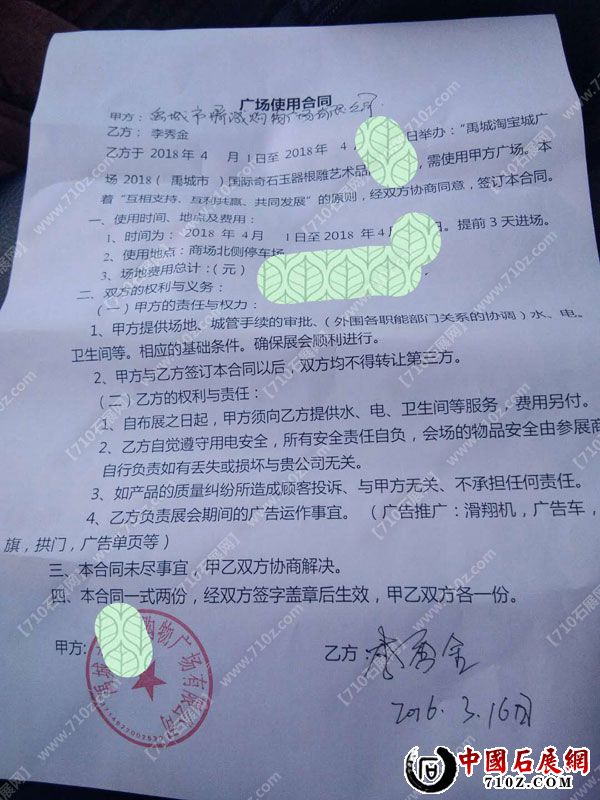 广场使用合同
甲方：禹城市 购物广场有限公司
乙方： 李秀金
乙方于 2018 年 4 月 1 日至 2018 年 4 日举办：“禹城淘宝城广
场 2018（ 禹城市 ）国际奇石玉器根雕艺术品 ，需使用甲方广场。本
着“互相支持、互利共赢、共同发展”的原则，经双方协商同意，签订本合同。
一、使用时间、地点及费用：
1、时间为： 2018 年 4月 1日至 2018 年 4月 日。提前 3 天进场。
2、使用地点：商场北侧停车场
3、场地费用总计：（元）
二、双方的权利与义务：
（一）甲方的责任与权力：
1、甲方提供场地、城管手续的审批、（外围各职能部门关系的协调）水、电。
卫生间等。相应的基础条件。确保展会顺利进行。
2、甲方与乙方签订本合同以后，双方均不得转让第三方。
（二）乙方的权利与责任：
1、自布展之日起，甲方须向乙方提供水、电、卫生间等服务，费用另付。
2、乙方自觉遵守用电安全，所有安全责任自负，会场的物品安全由参展商
自行负责如有丢失或损坏与贵公司无关。
3、如产品的质量纠纷所造成顾客投诉、与甲方无关、不承担任何责任。
4、乙方负责展会期间的广告运作事宜。（广告推广：滑翔机，广告车，
旗，拱门，广告单页等）
三、本合同未尽事宜，甲乙双方协商解决。
四、本合同一式两份，经双方签字盖章后生效，甲乙双方各一份。
甲方： 乙方：李秀金
禹城 购物广场有限公司
2016.3.16日
【710石展网】www.710z.com
中國石展網
710Z.COM